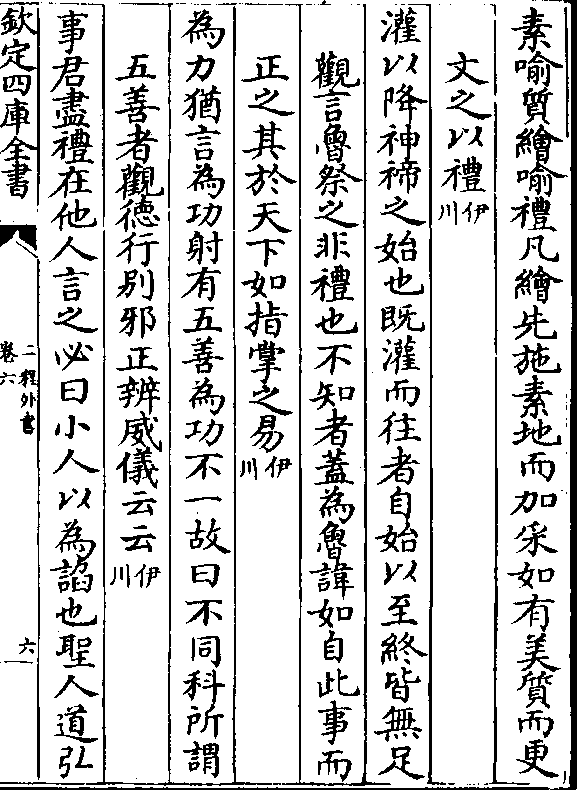 素喻質繪喻禮凡繪先施素地而加采如有美質而更
文之以禮伊川
灌以降神禘之始也既灌而往者自始以至終皆無足
觀言魯祭之非禮也不知者蓋為魯諱如自此事而
正之其於天下如指掌之易伊川
為力猶言為功射有五善為功不一故曰不同科所謂
五善者觀德行别邪正辨威儀云云伊川
事君盡禮在他人言之必曰小人以為諂也聖人道弘
欽定四庫全書
二程外書
卷六
六